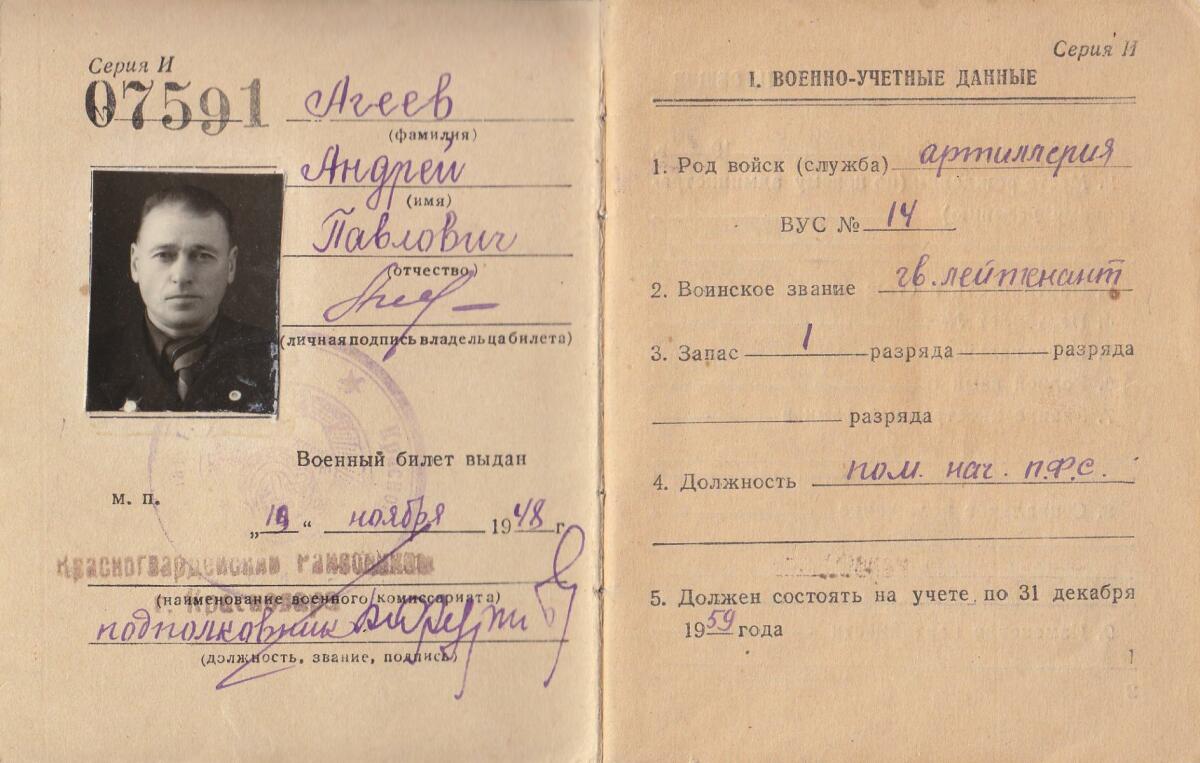 Серия И
07591
Агеев
(фамилия)
Андрей
(имя)
Павлович
(отчество)
(личная подпись владельца билета)
Военный билет выдан
м. п.
„19“ ноября 1948 г.
Красногвардейским райвоенкомат
(наименование военного комиссариата)
подполковник
(должность, звание, подпись)
Серия И
I. ВОЕННО-УЧЕТНЫЕ ДАННЫЕ
1. Род войск (служба) артиллерия
ВУС № 14
2. Воинское звание гв. лейтенант
3. Запас 1 разряда разряда
разряда
4. Должность пом. нач. П.Ф.С.
5. Должен состоять на учете по 31 декабря
1959 года
1